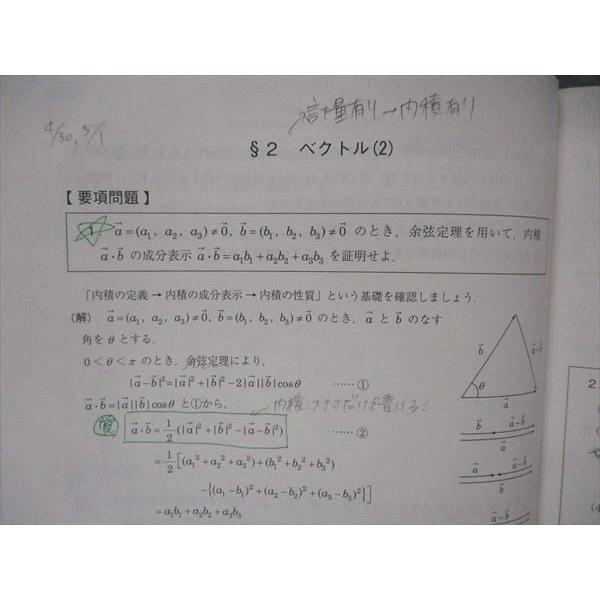 計量有り→内積有り
4/30, 5/1
§2 ベクトル(2)
【要項問題】
1. a⃗=(a₁, a₂, a₃)≠0⃗, b⃗=(b₁, b₂, b₃)≠0⃗ のとき, 余弦定理を用いて, 内積
a⃗・b⃗ の成分表示 a⃗・b⃗=a₁b₁+a₂b₂+a₃b₃ を証明せよ.
「内積の定義→内積の成分表示→内積の性質」という基礎を確認しましょう.
(解) a⃗=(a₁, a₂, a₃)≠0⃗, b⃗=(b₁, b₂, b₃)≠0⃗ のとき, a⃗ と b⃗ のなす
角を θ とする.
0<θ<π のとき, 余弦定理により,
|a⃗-b⃗|²=|a⃗|²+|b⃗|²-2|a⃗||b⃗|cosθ ……①
a⃗・b⃗=|a⃗||b⃗|cosθ と①から,
内積:大きさだけを書ける!
a⃗・b⃗=1/2(|a⃗|²+|b⃗|²-|a⃗-b⃗|²) ……②
=1/2[(a₁²+a₂²+a₃²)+(b₁²+b₂²+b₃²)
-{(a₁-b₁)²+(a₂-b₂)²+(a₃-b₃)²}]
=a₁b₁+a₂b₂+a₃b₃
b⃗
a⃗-b⃗
θ
a⃗
b⃗ a⃗-b⃗
a⃗
a⃗ a⃗-b⃗
b⃗
a⃗-b⃗
2.